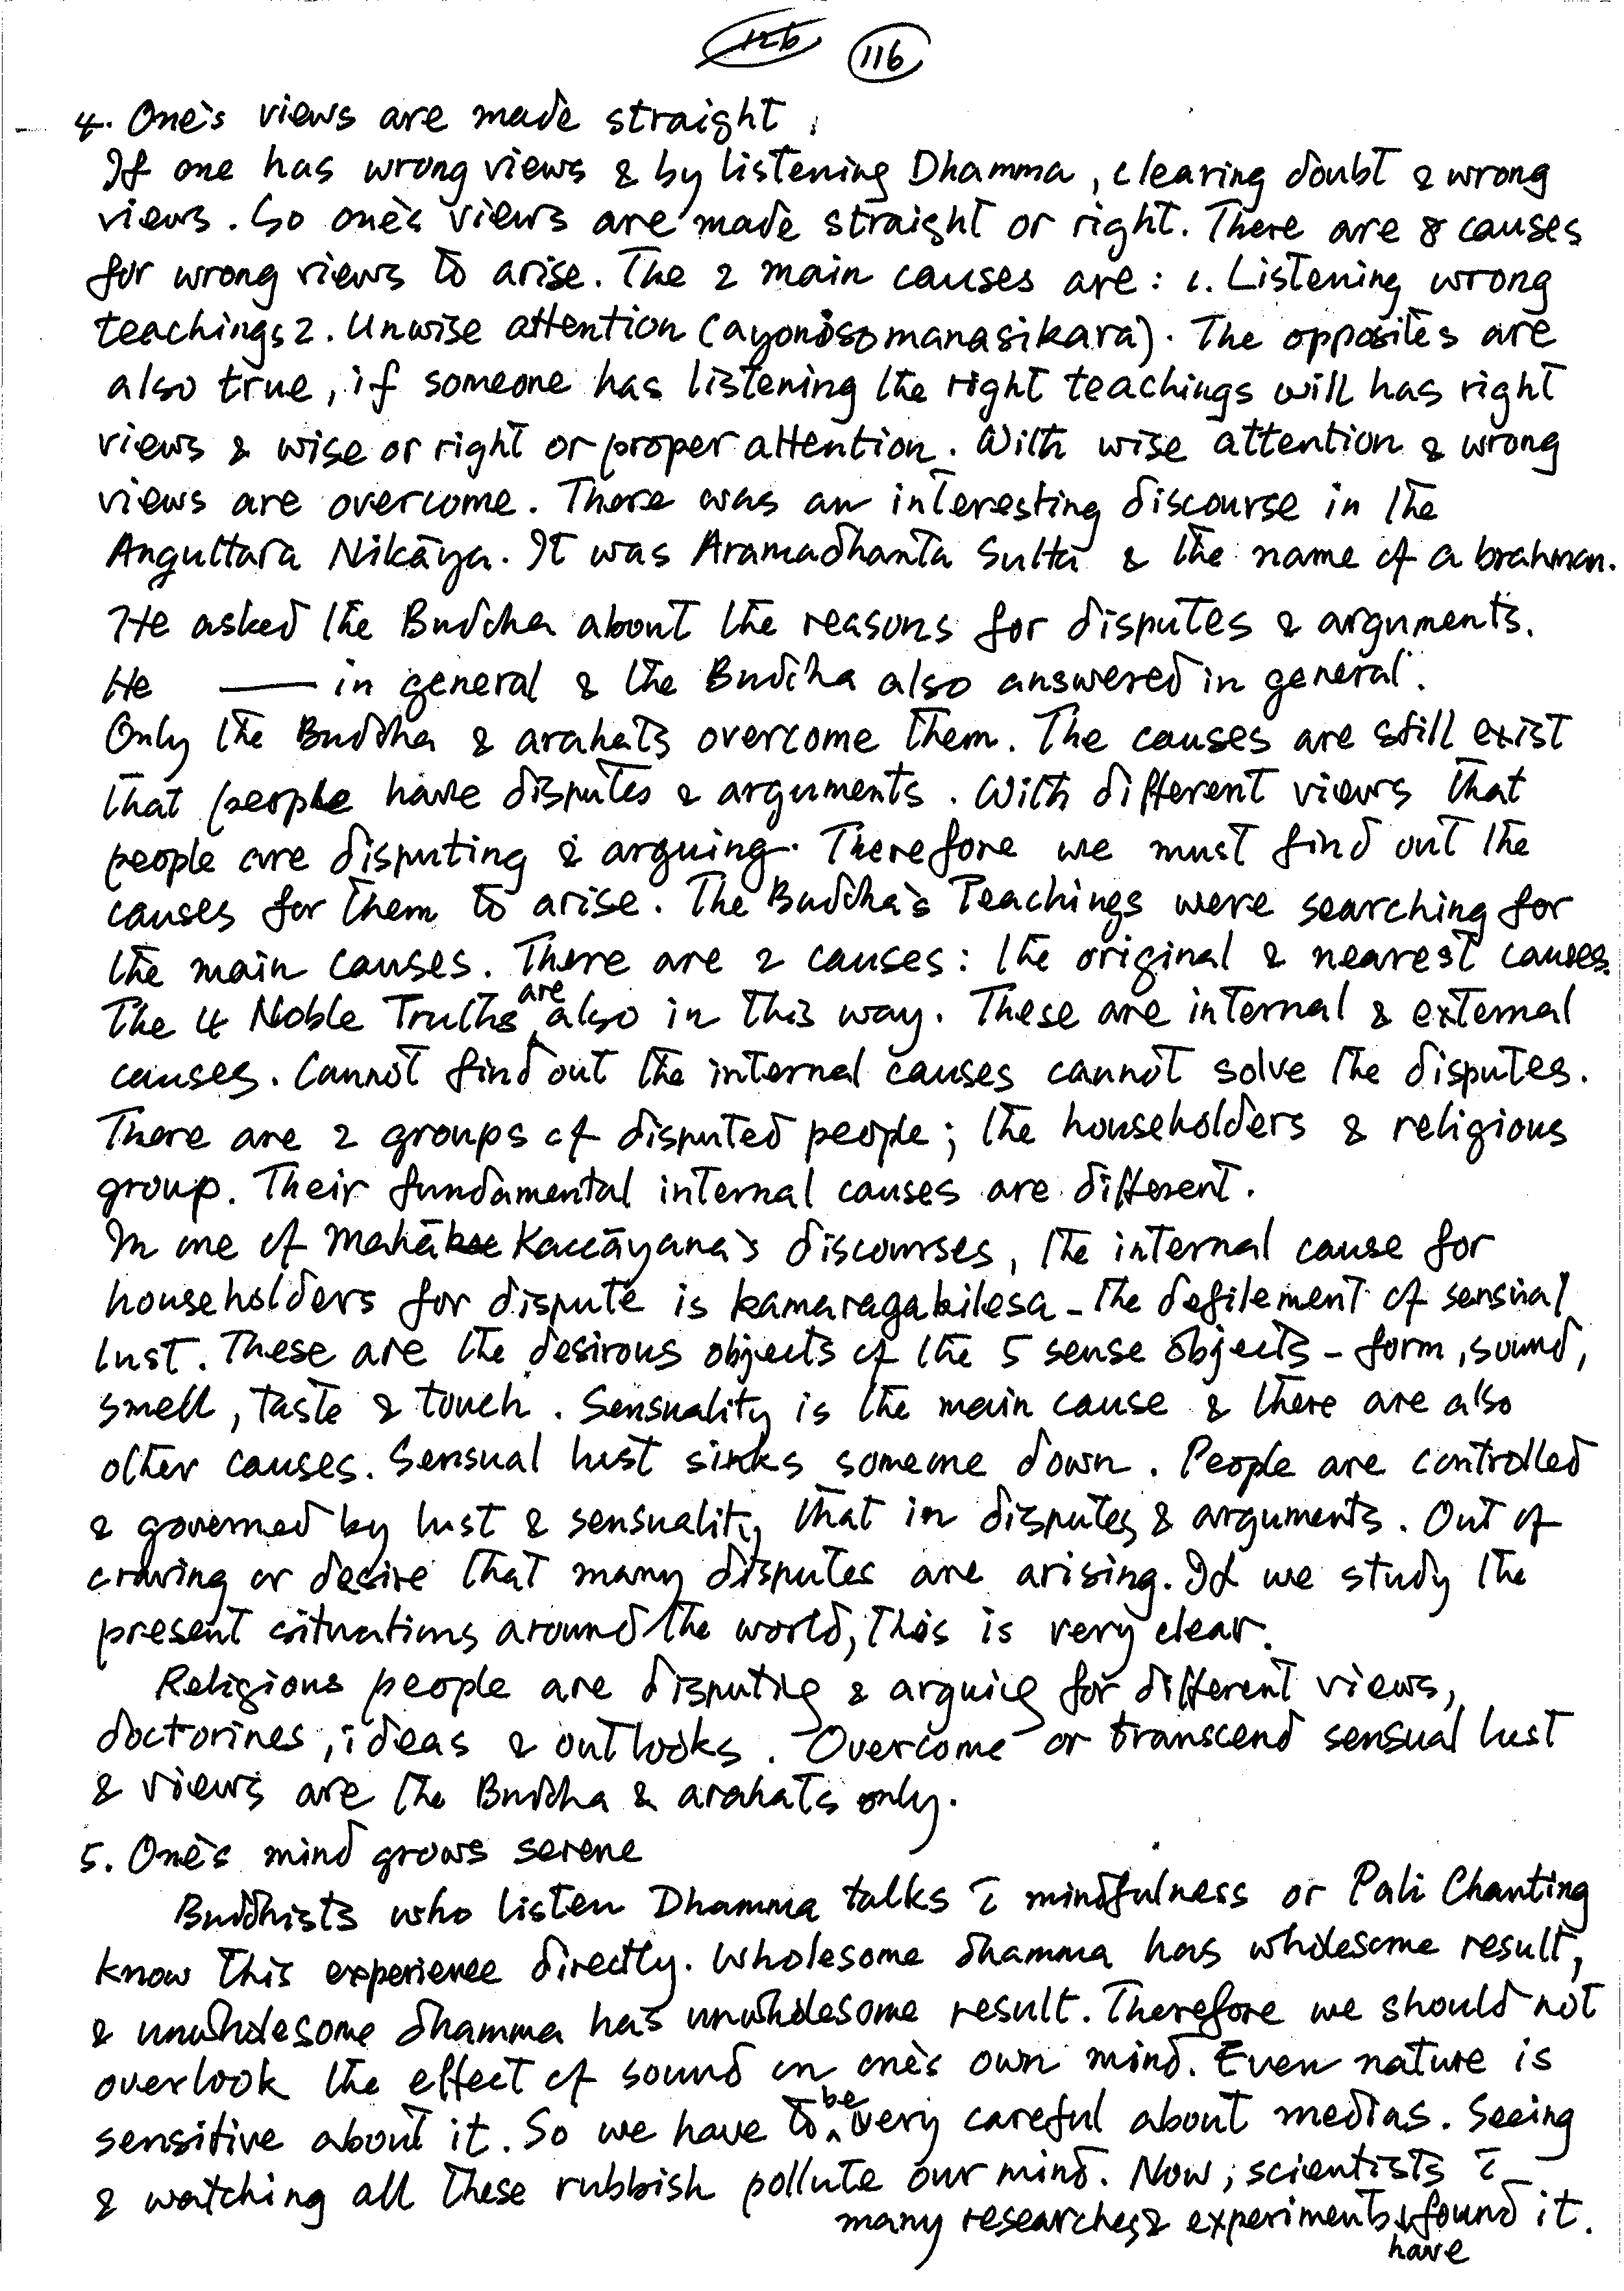 126 116
4. One's views are made straight.
If one has wrong views & by listening Dhamma, clearing doubt & wrong
views. So one's views are made straight or right. There are 8 causes
for wrong views to arise. The 2 main causes are: 1. Listening wrong
teachings 2. Unwise attention (ayonisomanasikara). The opposites are
also true, if someone has listening the right teachings will has right
views & wise or right or proper attention. With wise attention & wrong
views are overcome. There was an interesting discourse in the
Anguttara Nikāya. It was Aramadhanta Sutta & the name of a brahman.
He asked the Buddha about the reasons for disputes & arguments.
He —— in general & the Buddha also answered in general.
Only the Buddha & arahats overcome them. The causes are still exist
that people have disputes & arguments. With different views that
people are disputing & arguing. Therefore we must find out the
causes for them to arise. The Buddha's Teachings were searching for
the main causes. There are 2 causes: the original & nearest causes.
The 4 Noble Truths are also in this way. These are internal & external
causes. Cannot find out the internal causes cannot solve the disputes.
There are 2 groups of disputed people; the householders & religious
group. Their fundamental internal causes are different.
In one of Mahā Kaccāyana's discourses, the internal cause for
householders for dispute is kamaragakilesa - the defilement of sensual
lust. These are the desirous objects of the 5 sense objects - form, sound,
smell, taste & touch. Sensuality is the main cause & there are also
other causes. Sensual lust sinks someone down. People are controlled
& governed by lust & sensuality that in disputes & arguments. Out of
craving or desire that many disputes are arising. If we study the
present situations around the world, this is very clear.
Religious people are disputing & arguing for different views,
doctorines, ideas & outlooks. Overcome or transcend sensual lust
& views are the Buddha & arahats only.
5. One's mind grows serene
Buddhists who listen Dhamma talks c̄ mindfulness or Pali Chanting
know this experience directly. Wholesome dhamma has wholesome result,
& unwholesome dhamma has unwholesome result. Therefore we should not
overlook the effect of sound on one's own mind. Even nature is
sensitive about it. So we have to be very careful about medias. Seeing
& watching all these rubbish pollute our mind. Now, scientists c̄
many researches & experiments have found it.